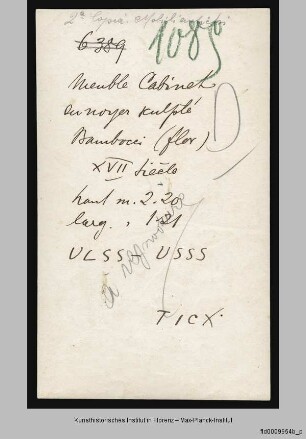 6389
1089
Meuble Cabinet
en noyer sculpté
Bambocci (flor)
XVII Siècle
haut m. 2.20
larg. " 1.21
ULSS - USSS
TICX
Kunsthistorisches Institut in Florenz – Max-Planck-Institut
fld0009954b_p